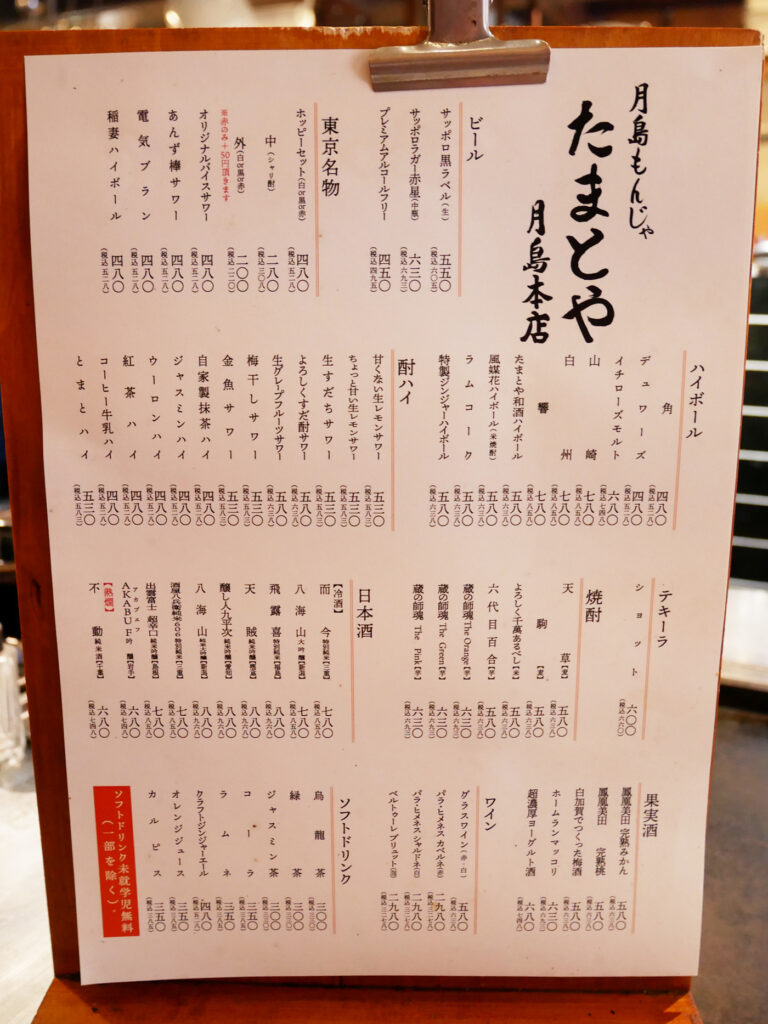 月島もんじゃ
たまとや
月島本店
ビール
サッポロ黒ラベル(生) 五五〇 (税込六〇五)
サッポロラガー赤星(中瓶) 六三〇 (税込六九三)
プレミアムアルコールフリー 四五〇 (税込四九五)
東京名物
ホッピーセット(白or黒or赤) 四八〇 (税込五二八)
中(シャリ酎) 二八〇 (税込三〇八)
外(白or黒or赤) 二〇〇 (税込二二〇)
※赤のみ+50円頂きます
オリジナルバイスサワー 四八〇 (税込五二八)
あんず棒サワー 四八〇 (税込五二八)
電気ブラン 四八〇 (税込五二八)
稲妻ハイボール 四八〇 (税込五二八)
ハイボール
角 四八〇 (税込五二八)
デュワーズ 四八〇 (税込五二八)
イチローズモルト 六八〇 (税込七四八)
山崎 七八〇 (税込八五八)
白州 七八〇 (税込八五八)
響 七八〇 (税込八五八)
たまとや和酒ハイボール 五八〇 (税込六三八)
風媒花ハイボール(米焼酎) 五八〇 (税込六三八)
ラムコーク 五八〇 (税込六三八)
特製ジンジャーハイボール 五八〇 (税込六三八)
酎ハイ
甘くない生レモンサワー 五三〇 (税込五八三)
ちょっと甘い生レモンサワー 五三〇 (税込五八三)
生すだちサワー 五三〇 (税込五八三)
よろしくすだ酎サワー 五八〇 (税込六三八)
生グレープフルーツサワー 五八〇 (税込六三八)
梅干しサワー 五三〇 (税込五八三)
金魚サワー 五三〇 (税込五八三)
自家製抹茶ハイ 四八〇 (税込五二八)
ジャスミンハイ 四八〇 (税込五二八)
ウーロンハイ 四八〇 (税込五二八)
紅茶ハイ 四八〇 (税込五二八)
コーヒー牛乳ハイ 四八〇 (税込五二八)
とまとハイ 五三〇 (税込五八三)
テキーラ
ショット 六〇〇 (税込六六〇)
焼酎
天草【麦】 五八〇 (税込六三八)
天駒【麦】 五八〇 (税込六三八)
よろしく千萬あるべし【米】 五八〇 (税込六三八)
六代目百合【芋】 五八〇 (税込六三八)
蔵の師魂 The Orange【芋】 六三〇 (税込六九三)
蔵の師魂 The Green【芋】 六三〇 (税込六九三)
蔵の師魂 The Pink【芋】 六三〇 (税込六九三)
日本酒
【冷酒】
而今 特別純米【三重】 七八〇 (税込八五八)
八海山 大吟醸【新潟】 七八〇 (税込八五八)
飛露喜 特別純米【福島】 八八〇 (税込九六八)
天賊 純米吟醸 八八〇 (税込九六八)
醸し人九平次 純米吟醸【愛知】 八八〇 (税込九六八)
八海山 純米大吟醸【新潟】 八八〇 (税込九六八)
酒屋八兵衛純米606特別純米【三重】 七八〇 (税込八五八)
出雲富士 超辛口 純米吟醸【島根】 七八〇 (税込八五八)
アカブエフ
AKABU F 吟醸【岩手】 六八〇 (税込七四八)
【熱燗】
不動 純米酒【千葉】 六八〇 (税込七四八)
果実酒
鳳凰美田 完熟みかん 五八〇 (税込六三八)
鳳凰美田 完熟桃 五八〇 (税込六三八)
白加賀でつくった梅酒 五八〇 (税込六三八)
ホームランマッコリ 六三〇 (税込六九三)
超濃厚ヨーグルト酒 六八〇 (税込七四八)
ワイン
グラスワイン(赤・白) 五八〇 (税込六三八)
パラ・ヒメネス カベルネ(赤) 二九八〇 (税込三二七八)
パラ・ヒメネス シャルドネ(白) 二九八〇 (税込三二七八)
ベルトゥーレ ブリュット(泡) 二九八〇 (税込三二七八)
ソフトドリンク
烏龍茶 三〇〇 (税込三三〇)
緑茶 三〇〇 (税込三三〇)
ジャスミン茶 三〇〇 (税込三三〇)
コーラ 三五〇 (税込三八五)
ラムネ 三五〇 (税込三八五)
クラフトジンジャーエール 四八〇 (税込五二八)
オレンジジュース 三五〇 (税込三八五)
カルピス 三五〇 (税込三八五)
ソフトドリンク未就学児無料
(一部を除く)